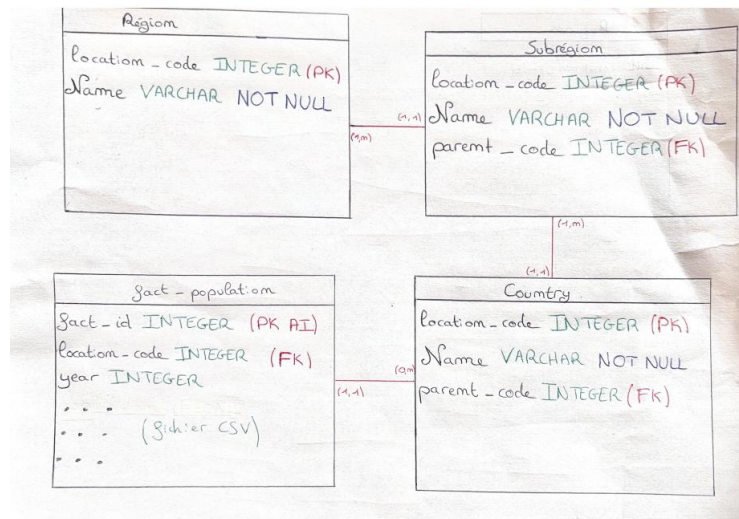 Région
location_code INTEGER (PK)
Name VARCHAR NOT NULL
(1,m)
(1,1)
Subrégion
location_code INTEGER (PK)
Name VARCHAR NOT NULL
parent_code INTEGER (FK)
(1,m)
(1,1)
fact_population
fact_id INTEGER (PK AI)
location_code INTEGER (FK)
year INTEGER
...
... (fichier CSV)
...
(1,1)
(0,m)
Country
location_code INTEGER (PK)
Name VARCHAR NOT NULL
parent_code INTEGER (FK)